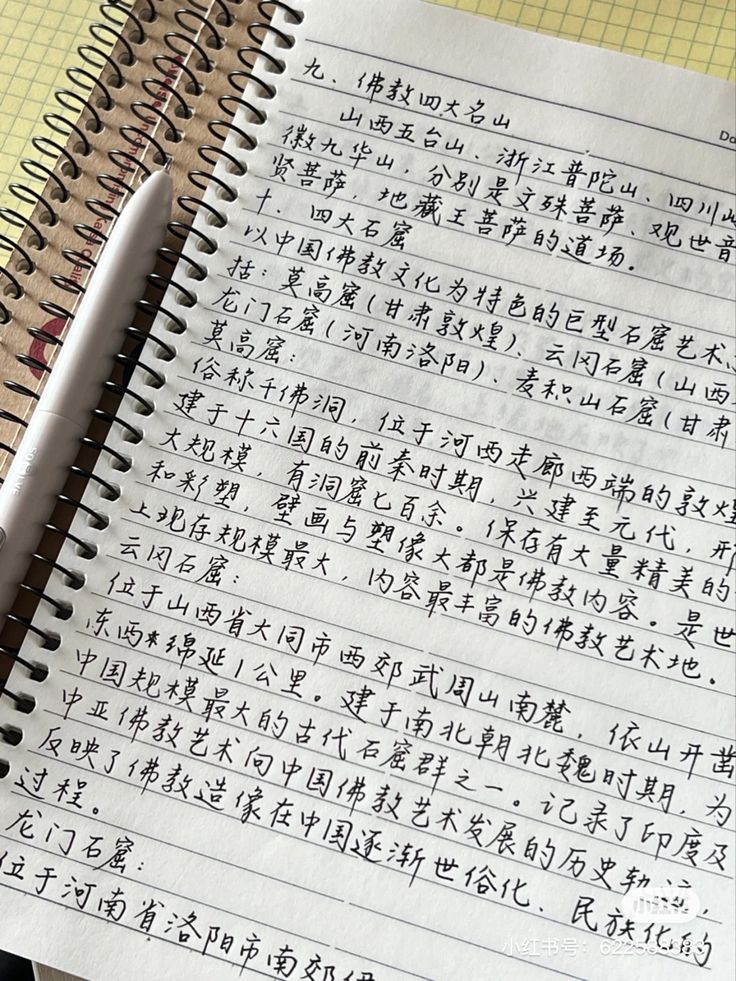 九、佛教四大名山
山西五台山、浙江普陀山、四川峨
徽九华山，分别是文殊菩萨、观世音
贤菩萨，地藏王菩萨的道场。
十、四大石窟
以中国佛教文化为特色的巨型石窟艺术
括：莫高窟(甘肃敦煌)、云冈石窟(山西
龙门石窟(河南洛阳)、麦积山石窟(甘肃
莫高窟：
俗称千佛洞，位于河西走廊西端的敦煌
建于十六国的前秦时期，兴建至元代，形
大规模，有洞窟七百余。保存有大量精美的
和彩塑，壁画与塑像大都是佛教内容。是世
上现存规模最大，内容最丰富的佛教艺术地。
云冈石窟：
位于山西省大同市西郊武周山南麓，依山开凿
东西绵延1公里。建于南北朝北魏时期，为
中国规模最大的古代石窟群之一。记录了印度及
中亚佛教艺术向中国佛教艺术发展的历史轨迹，
反映了佛教造像在中国逐渐世俗化、民族化的
过程。
龙门石窟：
位于河南省洛阳市南郊伊
Da
小红书
小红书号：